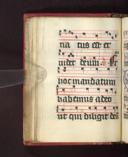 na tus est et
inter
hoc mandatum
habemus a deo
ut qui diligit de